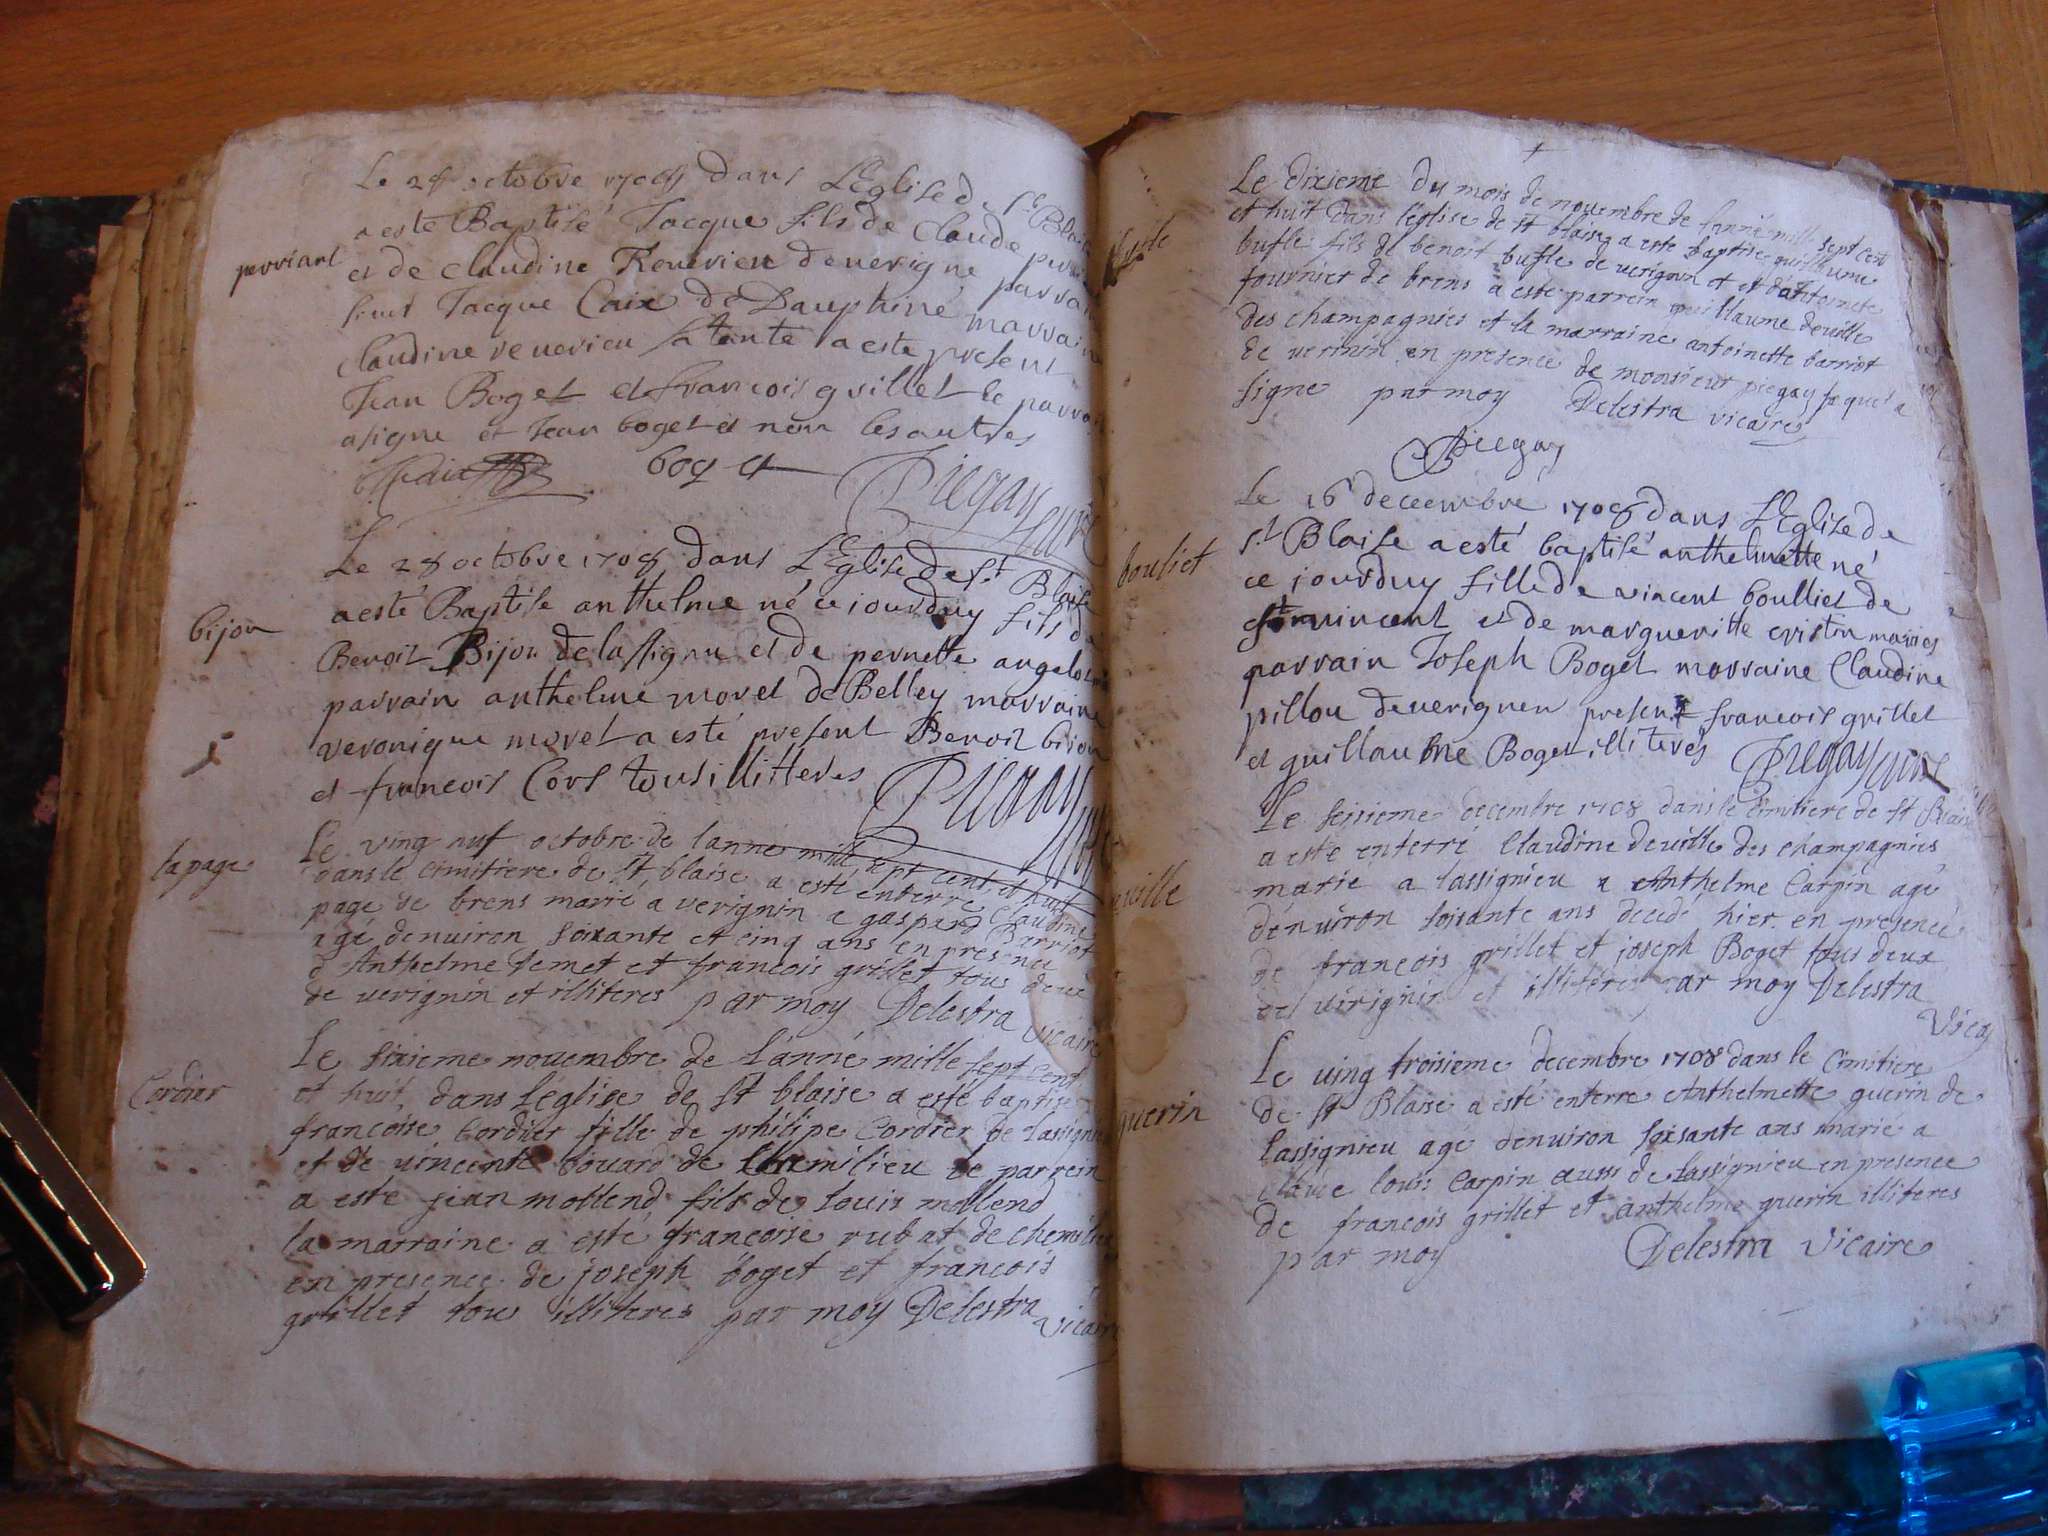 perriant
Le 28 octobre 1708 dans L'Eglise de St Blaise
a esté Baptisé Jacque fils de Claude
et de Claudine Reuerieu de uerigne parrain
Jacque Caix de Dauphiné marraine
Claudine reuerieu sa tante a esté present
Jean Boget et francois grillet le parrain
a signe et Jean boget et non les autres
Caix boget Piegay curé
bijou
Le 28 octobre 1708 dans L'Eglise de St Blaise
a esté Baptise anthelme né ce iourduy fils de
Benoit Bijou de lassignu et de pernette
parrain anthelme morel de Belley marraine
veronique morel a esté present Benoit bijou
et francois Cors tous illitteres Piegay curé
lapage
Le ving nuf octobre de lanné mille sept cent et huit
dans le cimitiere de St blaise a esté enterré Claudine
page de brens marié a verignin a gaspard Barriot
agé denuiron soixante et cinq ans en presence
d'Anthelme Jemet et francois grillet tous deux
de uerignin et illiteres par moy Delestra vicaire
Cordier
Le sixieme nouembre de l'anné mille sept cent
et huit dans l'église de St blaise a esté baptisé
francoise Cordier fille de philipe Cordier de lassignieu
et de uincente bouard de Chemilieu le parrein
a este jean mollend fils de louis mollend
la marraine a esté francoise rubat de chemilieu
en presence de joseph boget et francois
grillet tous illiteres par moy Delestra vicaire
bufle
Le dixieme du mois de nouembre de lanné mille sept cent
et huit dans leglise de St blaise a este baptise guillaume
bufle fils de benoit bufle de uerignin et d'antoinete
fournier de brens a este parrein guillaume deuille
des champagnies et la marraine antoinette barriot
de uerinin en presence de monsieur piegay
signe par moy Delestra vicaire
Piegay
bouliet
Le 16 decembre 1708 dans L'Eglize de
St Blaise a esté baptisé anthelmette né
ce jourduy fille de vincent boulliet de
vincent et de margueritte cristin maries
parrain Joseph Boget marraine Claudine
pillou de uerignen present francois grillet
et guillaume Boget illiterés Piegay curé
deville
Le seisieme decembre 1708 dans le cimitiere de St Blaise
a esté enterré Claudine deuille des champagnies
marie a lassignieu a Anthelme Carpin agé
d'enuiron soisante ans decedé hier en presence
de francois grillet et joseph Boget tous deux
de uirignin et illiteres par moy Delestra
vicaire
guerin
Le uing troisieme decembre 1708 dans le cimitiere
de St Blaise a esté enterré Anthelmette guerin de
lassignieu agé denuiron soisante ans marié a
louis Carpin aussi de lassignieu en presence
de francois grillet et anthelme guerin illiteres
par moy Delestra vicaire